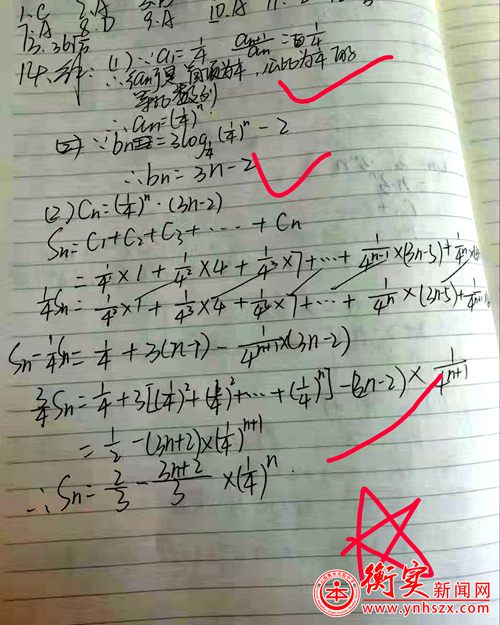 1.C 2.A
7.A 8.D 9.A 10.A
13.36倍
14.解: (1) ∵a₁=1/4 aₙ₊₁/aₙ=1/4
∴{aₙ}是首项为1/4,公比为1/4的
等比数列
∴aₙ=(1/4)ⁿ
∵bₙ=3log_{1/4}(1/4)ⁿ-2
∴bₙ=3n-2
(2) Cₙ=(1/4)ⁿ·(3n-2)
Sₙ=C₁+C₂+C₃+……+Cₙ
=1/4×1+1/4²×4+1/4³×7+…+1/4ⁿ⁻¹×(3n-5)+1/4ⁿ×
1/4Sₙ=1/4²×1+1/4³×4+1/4⁴×7+…+1/4ⁿ×(3n-5)+1/4ⁿ⁺¹
Sₙ-1/4Sₙ=1/4+3(n-1)-1/4ⁿ⁺¹×(3n-2)
3/4Sₙ=1/4+3[(1/4)²+(1/4)³+…+(1/4)ⁿ]-(3n-2)×1/4ⁿ⁺¹
=1/2-(3n+2)×(1/4)ⁿ⁺¹
∴Sₙ=2/3-(3n+2)/3×(1/4)ⁿ
衡实新闻网
www.ynhszx.com